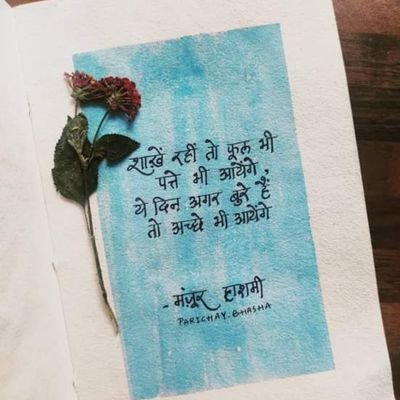 शाख़ें रहीं तो फूल भी
पत्ते भी आयेंगे,
ये दिन अगर बुरे हैं
तो अच्छे भी आयेंगे
- मंज़ूर हाशमी
PARICHAY.BHASHA